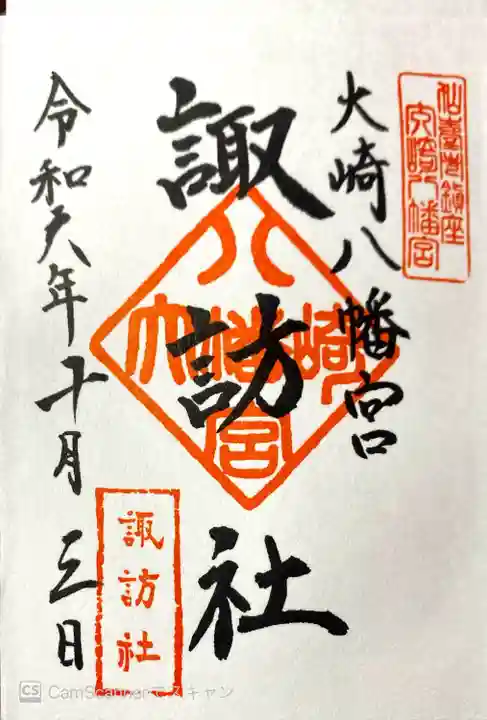 大崎八幡宮
諏訪社
令和六年十月三日
大崎八幡宮
大崎八幡宮
諏訪社
CS CamScannerでスキャン